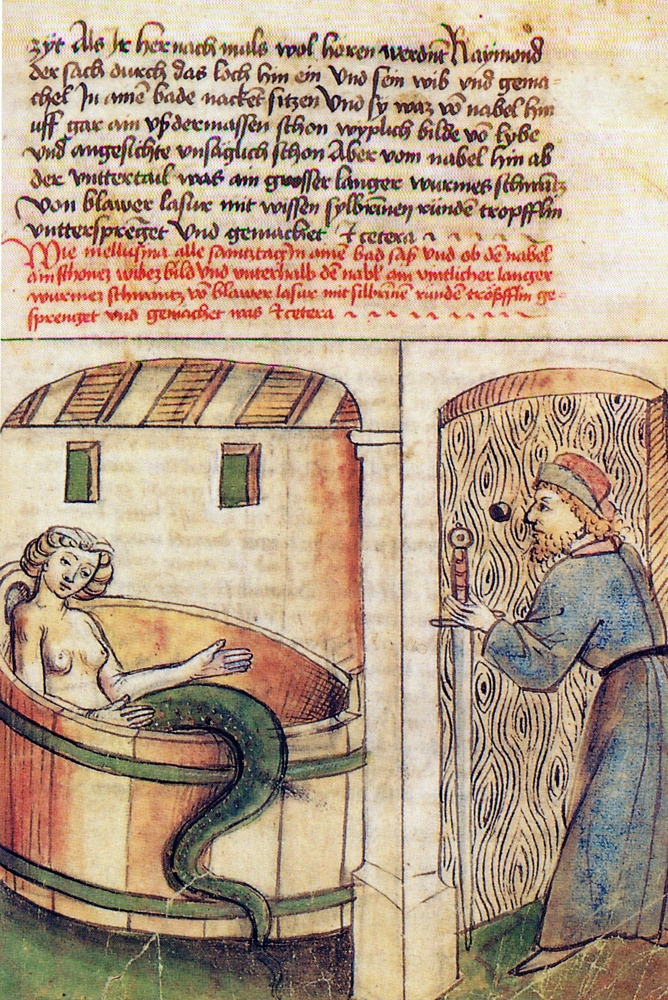 zyt Als Ir her nach mals wol horen werdint Raymond
der sach durch das loch hin ein Und sein wib und gema-
chel In ainē bade nacket sitzen Und sy waz vō nabel hin
uff gar ain usdermassen schon wyplich bilde vō lybe
und angesichte unsäglich schon Aber vom nabel hin ab
der untterteil was ain grosser langer wurmes schwantz
von blawer lasur mit wissen sylbrinen runden tropfflin
untterspreget und gemachet Et cetera
Wie mellusina alle samtztag in ainē bad saß und ob dē nabel
ain schönez wibez bild und unterhalb dē nabl ain langer
wurmez schwantz vō blawer lasur mit silbrinē runden tröpfflin ge-
sprenget und gemachet was Et cetera